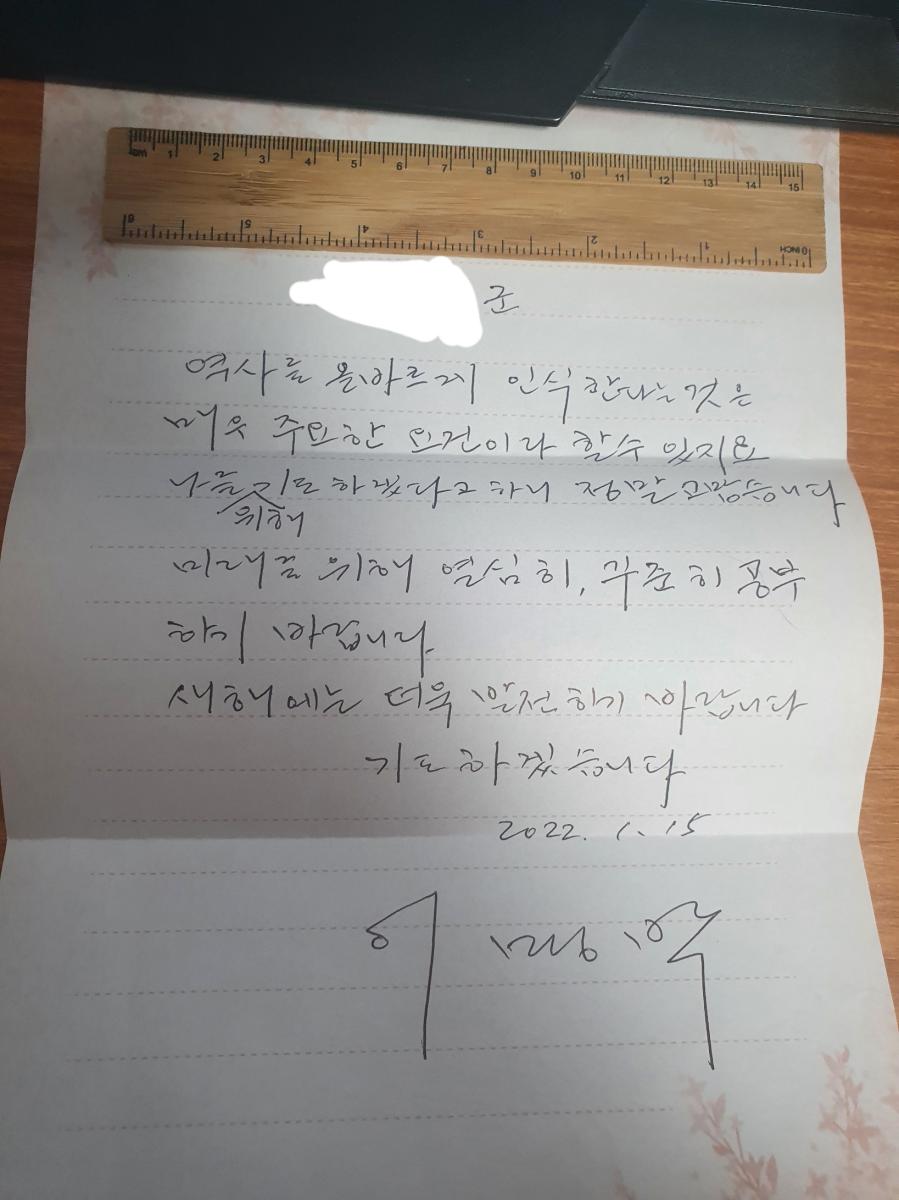 cm 1 2 3 4 5 6 7 8 9 10 11 12 13 14 15
6 5 4 3 2 1 0 INCH
군
역사를 올바르게 인식한다는것은
매우 주요한 요건이라 할수 있지요
나를 기도 하겠다고 하니 정말 고맙습니다
위해
미래를 위해 열심히, 꾸준히 공부
하기 바랍니다
새해에는 더욱 발전하기 바랍니다
기도하겠습니다
2022. 1. 15
이명박